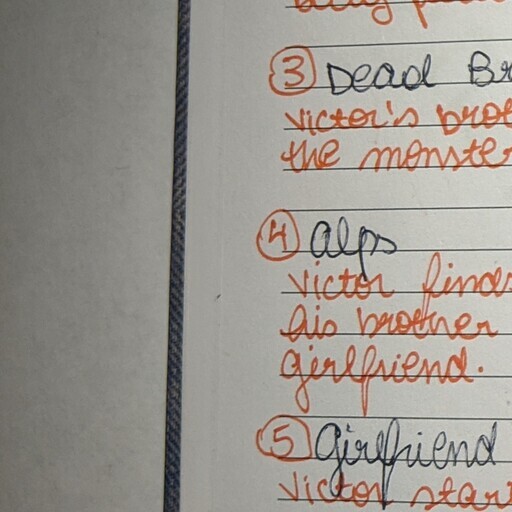 ③ Dead Br
Victor's brot
the monster
④ Alps
Victor finds
his brother
girlfriend.
⑤ Girlfriend
Victor star